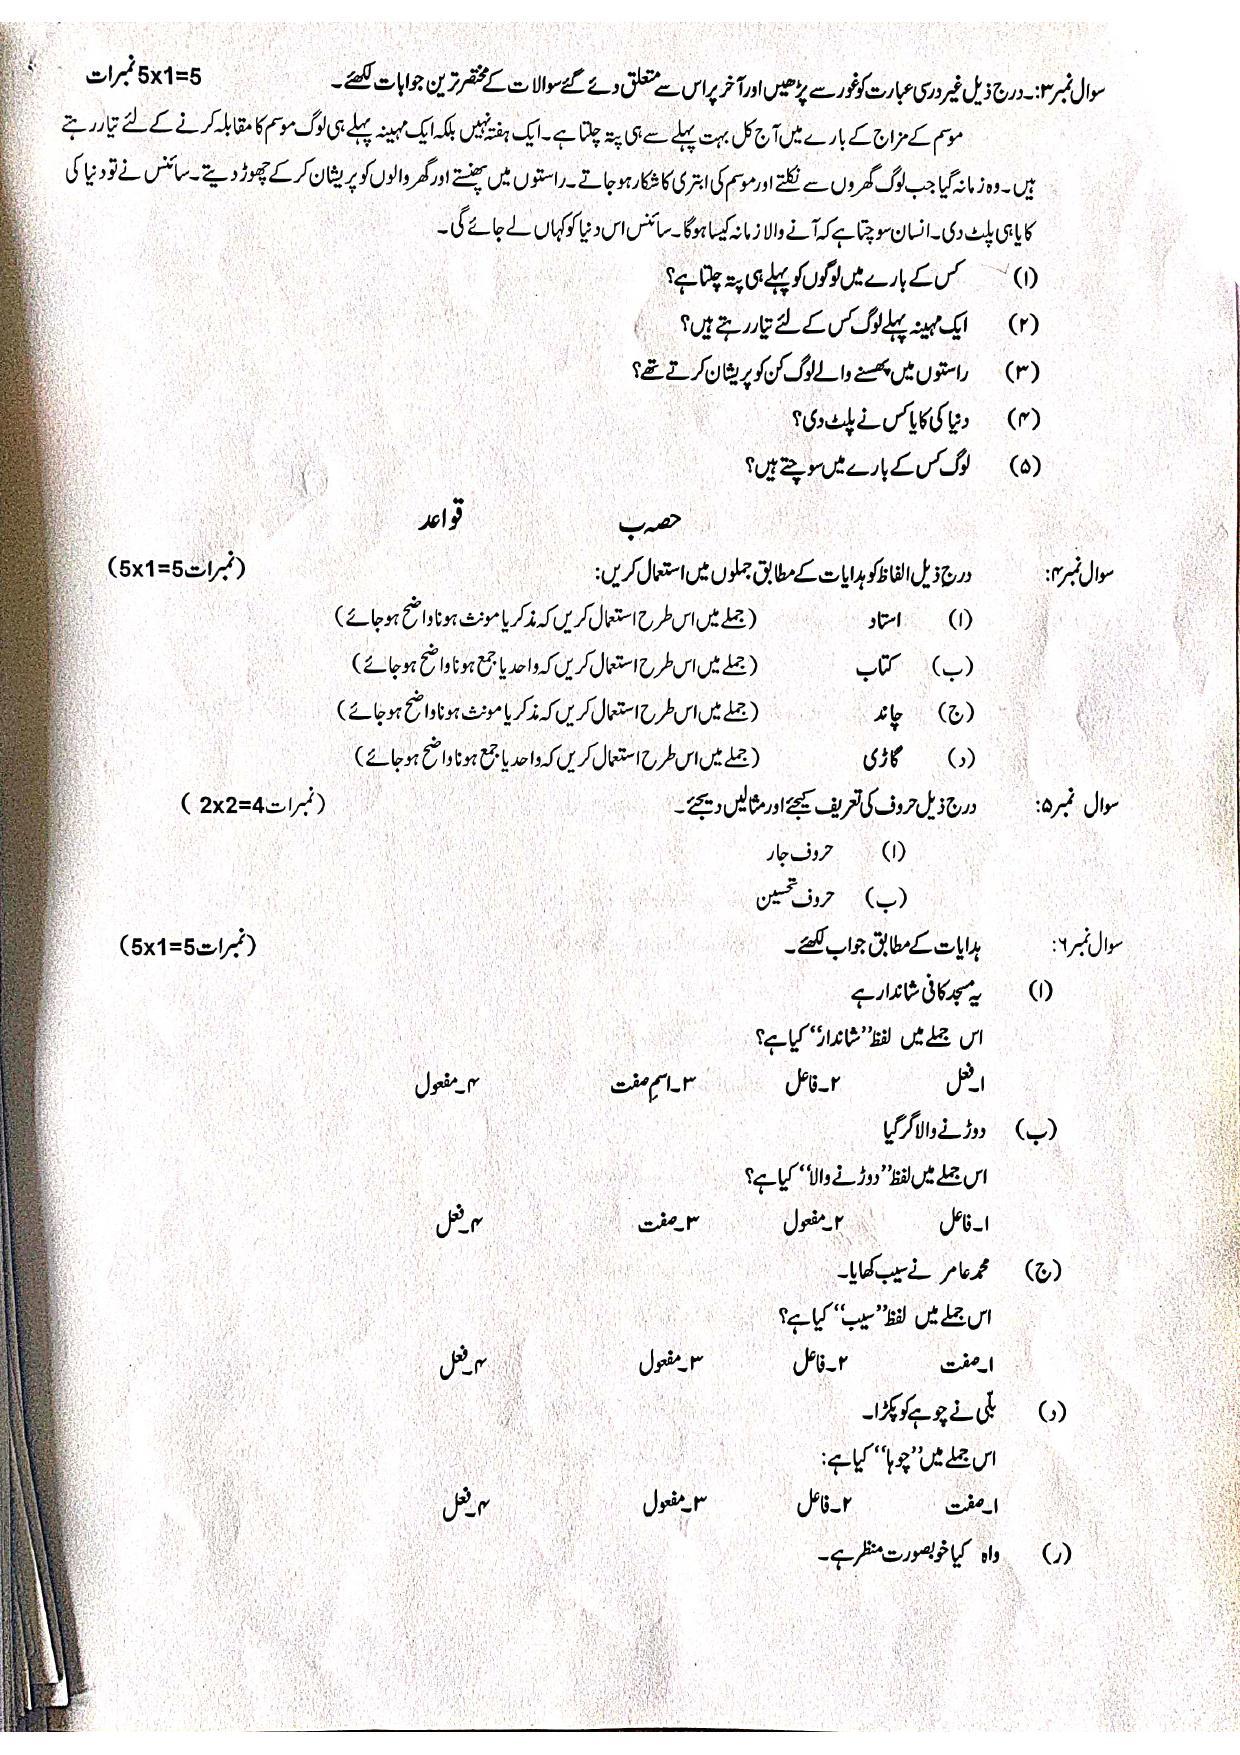 سوال نمبر۳:۔درج ذیل غیر درسی عبارت کو غور سے پڑھیں اور آخر پر اس سے متعلق دئے گئے سوالات کے مختصر ترین جوابات لکھئے۔ 5x1=5نمبرات
موسم کے مزاج کے بارے میں آج کل بہت پہلے سے ہی پتہ چلتا ہے۔ ایک ہفتہ نہیں بلکہ ایک مہینہ پہلے ہی لوگ موسم کا مقابلہ کرنے کے لئے تیار رہتے
ہیں۔ وہ زمانہ گیا جب لوگ گھروں سے نکلتے اور موسم کی ابتری کا شکار ہو جاتے۔ راستوں میں پھنستے اور گھر والوں کو پریشان کر کے چھوڑ دیتے۔ سائنس نے تو دنیا کی
کایا ہی پلٹ دی۔ انسان سوچتا ہے کہ آنے والا زمانہ کیسا ہوگا۔ سائنس اس دنیا کو کہاں لے جائے گی۔
(۱) کس کے بارے میں لوگوں کو پہلے ہی پتہ چلتا ہے؟
(۲) ایک مہینہ پہلے لوگ کس کے لئے تیار رہتے ہیں؟
(۳) راستوں میں پھسنے والے لوگ کن کو پریشان کرتے تھے؟
(۴) دنیا کی کایا کس نے پلٹ دی؟
(۵) لوگ کس کے بارے میں سوچتے ہیں؟
حصہ ب قواعد
سوال نمبر۴: درج ذیل الفاظ کو ہدایات کے مطابق جملوں میں استعمال کریں: (5x1=5نمبرات)
(ا) استاد (جملے میں اس طرح استعمال کریں کہ مذکر یا مونث ہونا واضح ہو جائے)
(ب) کتاب (جملے میں اس طرح استعمال کریں کہ واحد یا جمع ہونا واضح ہو جائے)
(ج) چاند (جملے میں اس طرح استعمال کریں کہ مذکر یا مونث ہونا واضح ہو جائے)
(د) گاڑی (جملے میں اس طرح استعمال کریں کہ واحد یا جمع ہونا واضح ہو جائے)
سوال نمبر۵: درج ذیل حروف کی تعریف کیجئے اور مثالیں دیجئے۔ (2x2=4نمبرات)
(ا) حروف جار
(ب) حروف تحسین
سوال نمبر۶: ہدایات کے مطابق جواب لکھئے۔ (5x1=5نمبرات)
(ا) یہ مسجد کافی شاندار ہے
اس جملے میں لفظ ”شاندار“ کیا ہے؟
۱۔فعل ۲۔فاعل ۳۔اسمِ صفت ۴۔مفعول
(ب) دوڑنے والا گر گیا
اس جملے میں لفظ ”دوڑنے والا“ کیا ہے؟
۱۔فاعل ۲۔مفعول ۳۔صفت ۴۔فعل
(ج) محمد عامر نے سیب کھایا۔
اس جملے میں لفظ ”سیب“ کیا ہے؟
۱۔صفت ۲۔فاعل ۳۔مفعول ۴۔فعل
(د) بلّی نے چوہے کو پکڑا۔
اس جملے میں ”چوہا“ کیا ہے:
۱۔صفت ۲۔فاعل ۳۔مفعول ۴۔فعل
(ر) واہ کیا خوبصورت منظر ہے۔